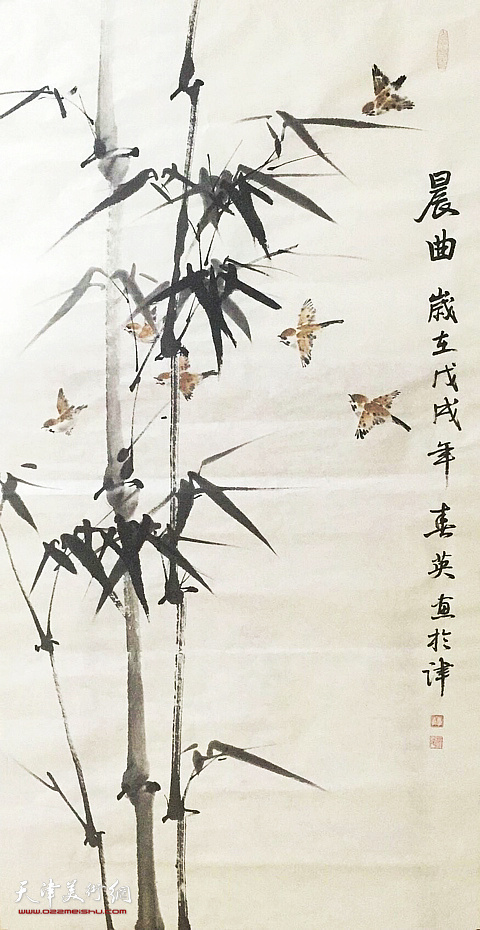 晨曲 歲在戊戌年 春英画於津
天津美术网
www.022meishu.com